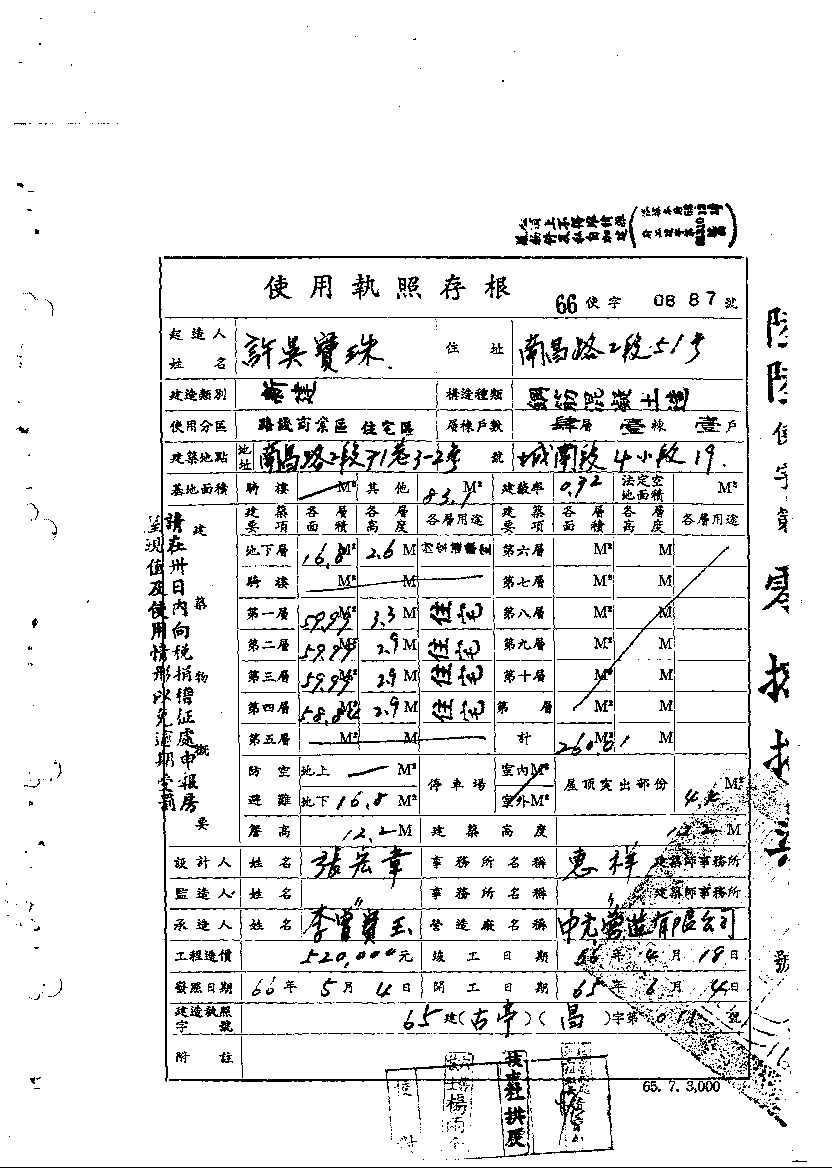 使用執照存根
66 使字 0887 號
起造人姓名 許吳寶珠 住址 南昌路2段51号
建造類別 新建 構造種類 鋼筋混凝土造
使用分區 路綫商業區 住宅區 層棟戶數 肆層 壹棟 壹戶
建築地點 地址 南昌路2段71巷3-2号 號 城南段4小段19.
基地面積 騎樓 M² 其他 83.1 M² 建蔽率 0.72 法定空地面積 M²
建築要項 各層面積 各層高度 各層用途 建築要項 各層面積 各層高度 各層用途
地下層 16.8 M² 2.6 M 第六層 M² M
騎樓 M² M 第七層 M² M
第一層 59.99 M² 3.3 M 住宅 第八層 M² M
第二層 59.99 M² 2.9 M 住宅 第九層 M² M
第三層 59.99 M² 2.9 M 住宅 第十層 M² M
第四層 M² 2.9 M 住宅 第 層 M² M
第五層 M² M 計 M² M
建築物概要
防空避難 地上 M² 地下 16.8 M² 停車場 室內 M² 室外 M² 屋頂突出部份 M²
簷高 12.2 M 建築高度 12.2 M
設計人 姓名 張宏章 事務所名稱 惠祥 建築師事務所
監造人 姓名 〃 事務所名稱 〃 建築師事務所
承造人 姓名 李曾寶玉 營造廠名稱 中光營造有限公司
工程造價 520,000 元 竣工日期 66 年 4 月 18 日
發照日期 66 年 5 月 4 日 開工日期 65 年 6 月 4 日
建造執照字號 65 建(古亭)(昌)字第 011 號
附註
65. 7. 3,000
請在卅日內向稅捐稽征處申報房
屋現值及使用情形以免逾期受罰